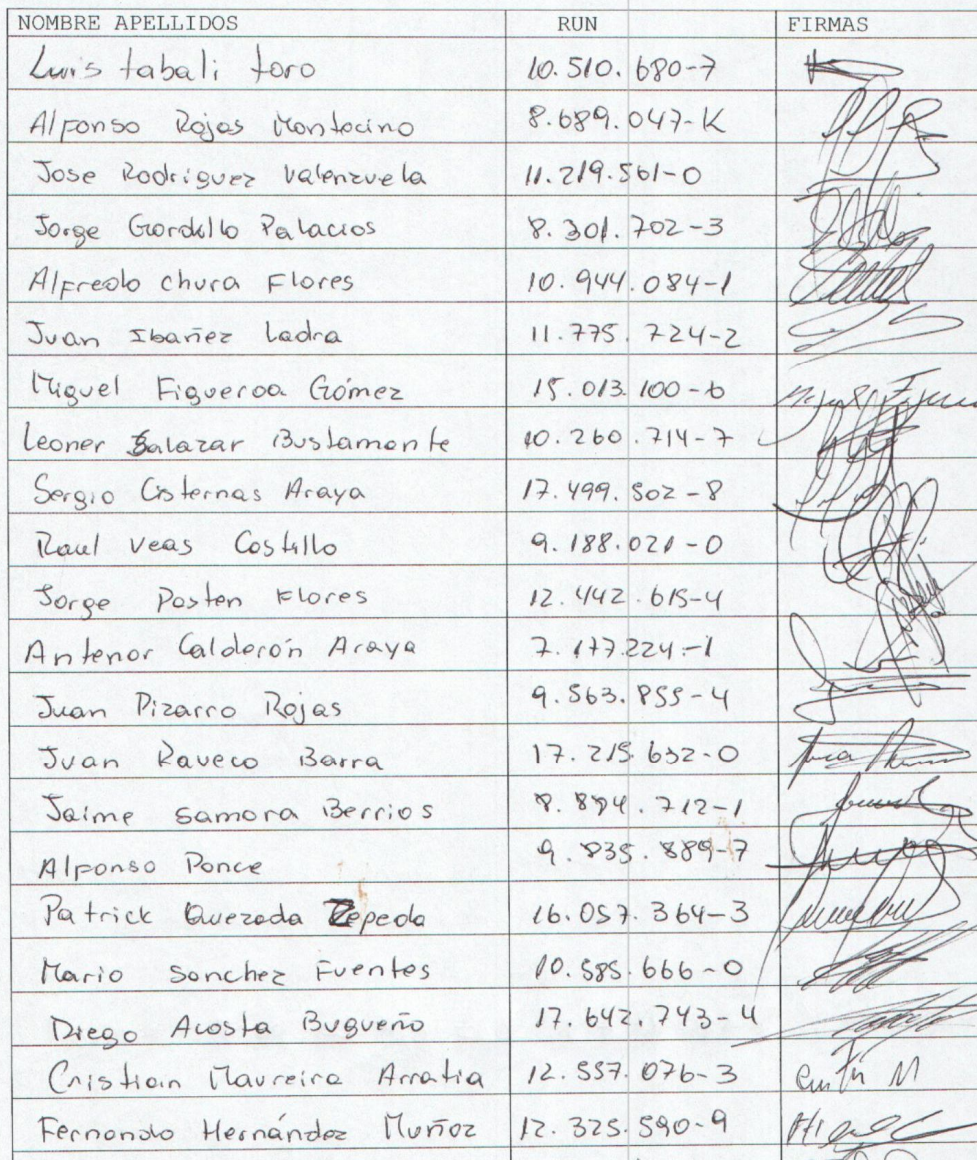 NOMBRE APELLIDOS RUN FIRMAS
Luis tabali toro 10.510.680-7
Alfonso Rojas Montecino 8.689.047-K
Jose Rodriguez Valenzuela 11.219.561-0
Jorge Gordillo Palacios 8.301.702-3
Alfredo chura Flores 10.944.084-1
Juan Ibañez Ladra 11.775.724-2
Miguel Figueroa Gómez 15.013.100-6
Leoner Salazar Bustamante 10.260.714-7
Sergio Cisternas Araya 17.499.502-8
Raul Veas Costillo 9.188.021-0
Jorge Posten Flores 12.442.615-4
Antenor Calderón Araya 7.177.224-1
Juan Pizarro Rojas 9.563.855-4
Juan Raveco Barra 17.215.632-0
Jaime Samora Berrios 8.894.712-1
Alfonso Ponce 9.835.889-7
Patrick Quezada Zepeda 16.057.364-3
Mario Sanchez Fuentes 10.585.666-0
Diego Acosta Bugueño 17.642.743-4
Cristian Maureira Arratia 12.557.076-3
Fernando Hernández Muñoz 12.325.590-9